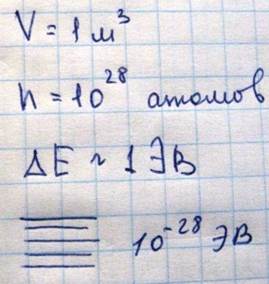 V = 1 м³
n = 10²⁸ атомов
ΔE ~ 1 ЭВ
10⁻²⁸ ЭВ